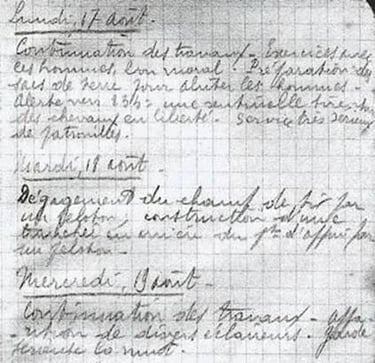 Lundi, 17 août.
Continuation des travaux - Exercices avec
les hommes, bon moral. Préparation de
sacs de terre pour abriter les hommes -
Alerte vers 23h½ une sentinelle tire sur
des chevaux en liberté. Service très sérieux
de patrouilles.
Mardi, 18 août -
Dégagement du champ de tir par
un peloton, construction d'une
tranchée en arrière du pt d'appui par
un peloton -
Mercredi, 19 août -
Continuation des travaux - appa-
rition de divers éclaireurs - garde
la nuit.